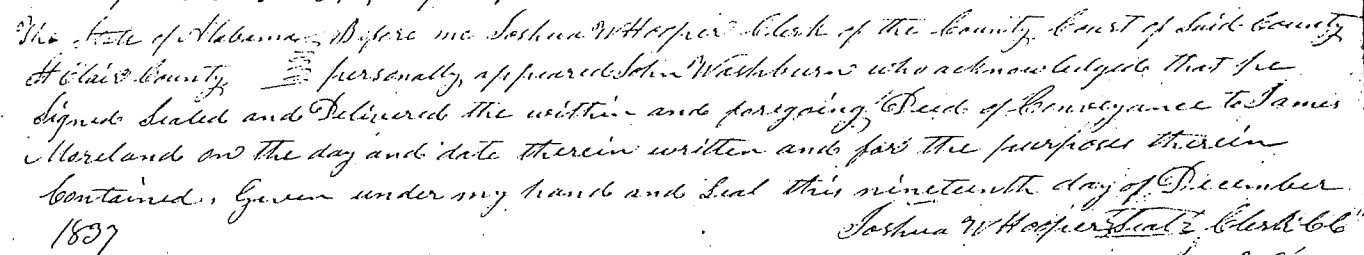 The State of Alabama Before me Joshua W Hooper Clerk of the County Court of Said County
St Clair County personally appeared John Washburn who acknowledged that he
Signed Sealed and Delivered the within and foregoing Deed of Conveyance to James
Moreland on the day and date therein written and for the purposes therein
Contained. Given under my hand and Seal this nineteenth day of December
1837 Joshua W Hooper Seal Clerk CC